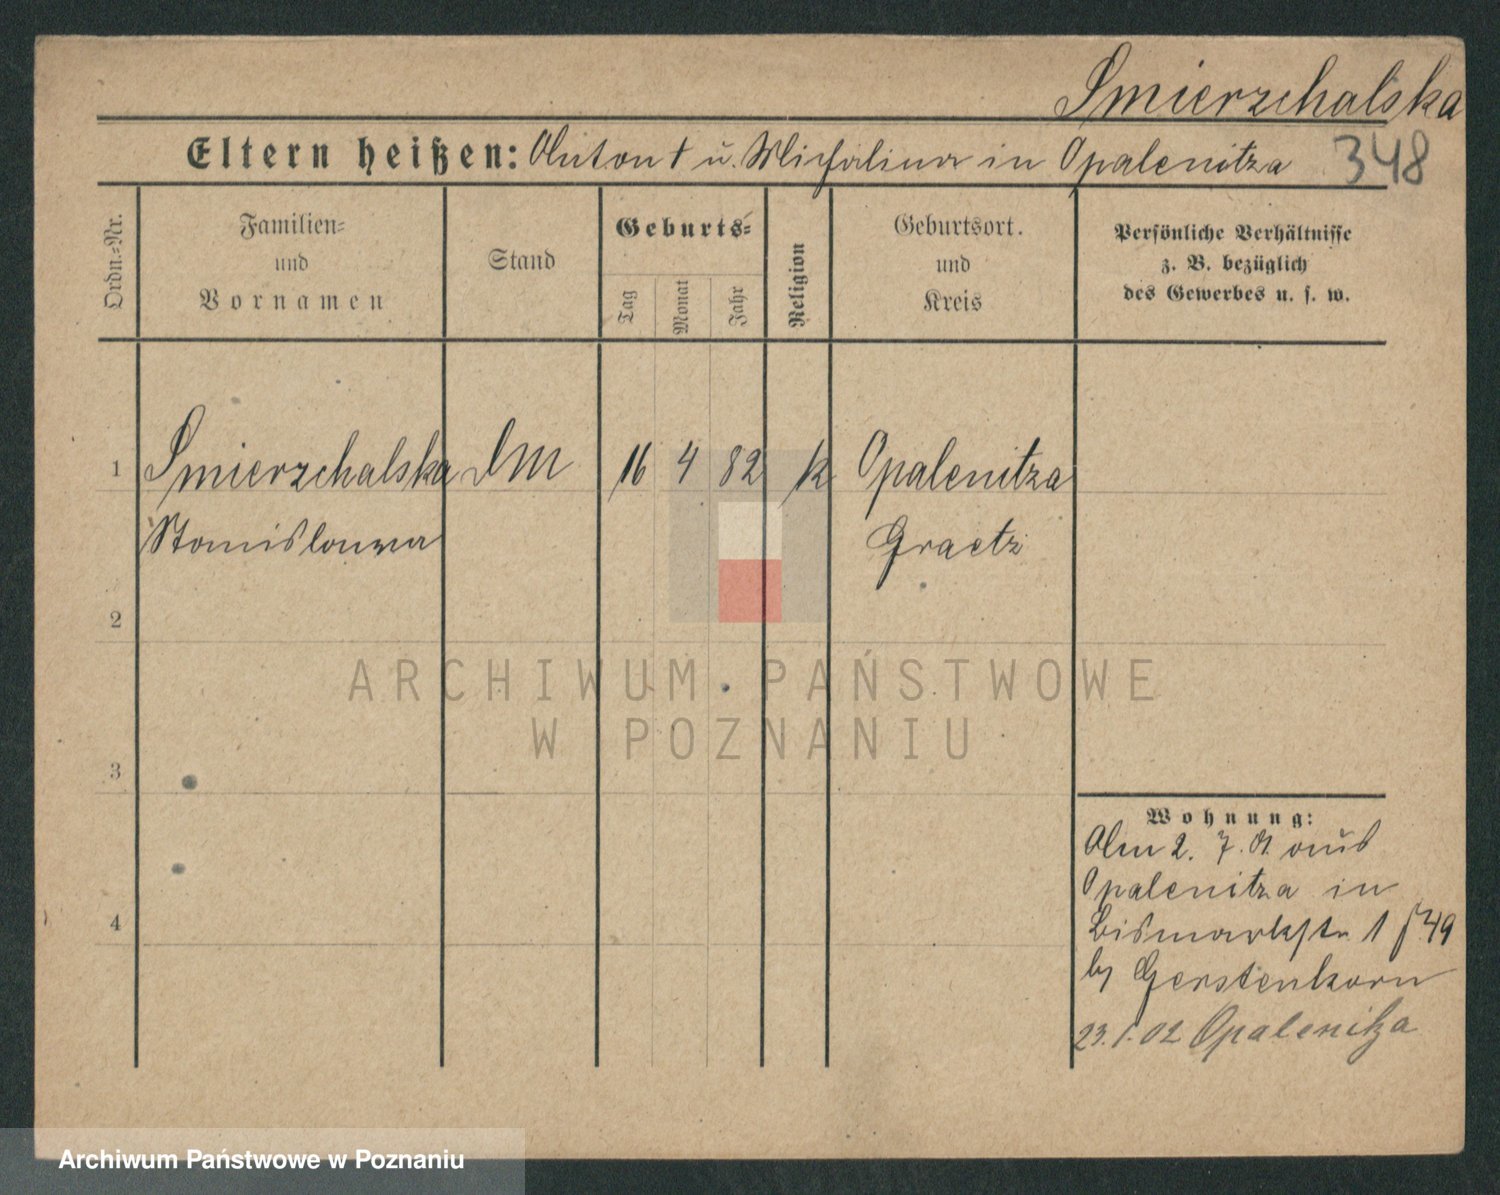 Smierzchalska
Eltern heißen: Anton † u. Michalina in Opalenitza 348
Ordn.-Nr.
Familien-
und
Vornamen
Stand
Geburts-
Tag
Monat
Jahr
Religion
Geburtsort.
und
Kreis
Persönliche Verhältnisse
z. B. bezüglich
des Gewerbes u. s. w.
1 Smierzchalska DM 16 4 82 k Opalenitza
Stanislawa Graetz
2
3
4
Wohnung:
Am 2. 7. 01 aus
Opalenitza in
Bismarkstr 1
by Gerstenkorn
23.1.02 Opalenitza
ARCHIWUM PAŃSTWOWE
W POZNANIU
Archiwum Państwowe w Poznaniu